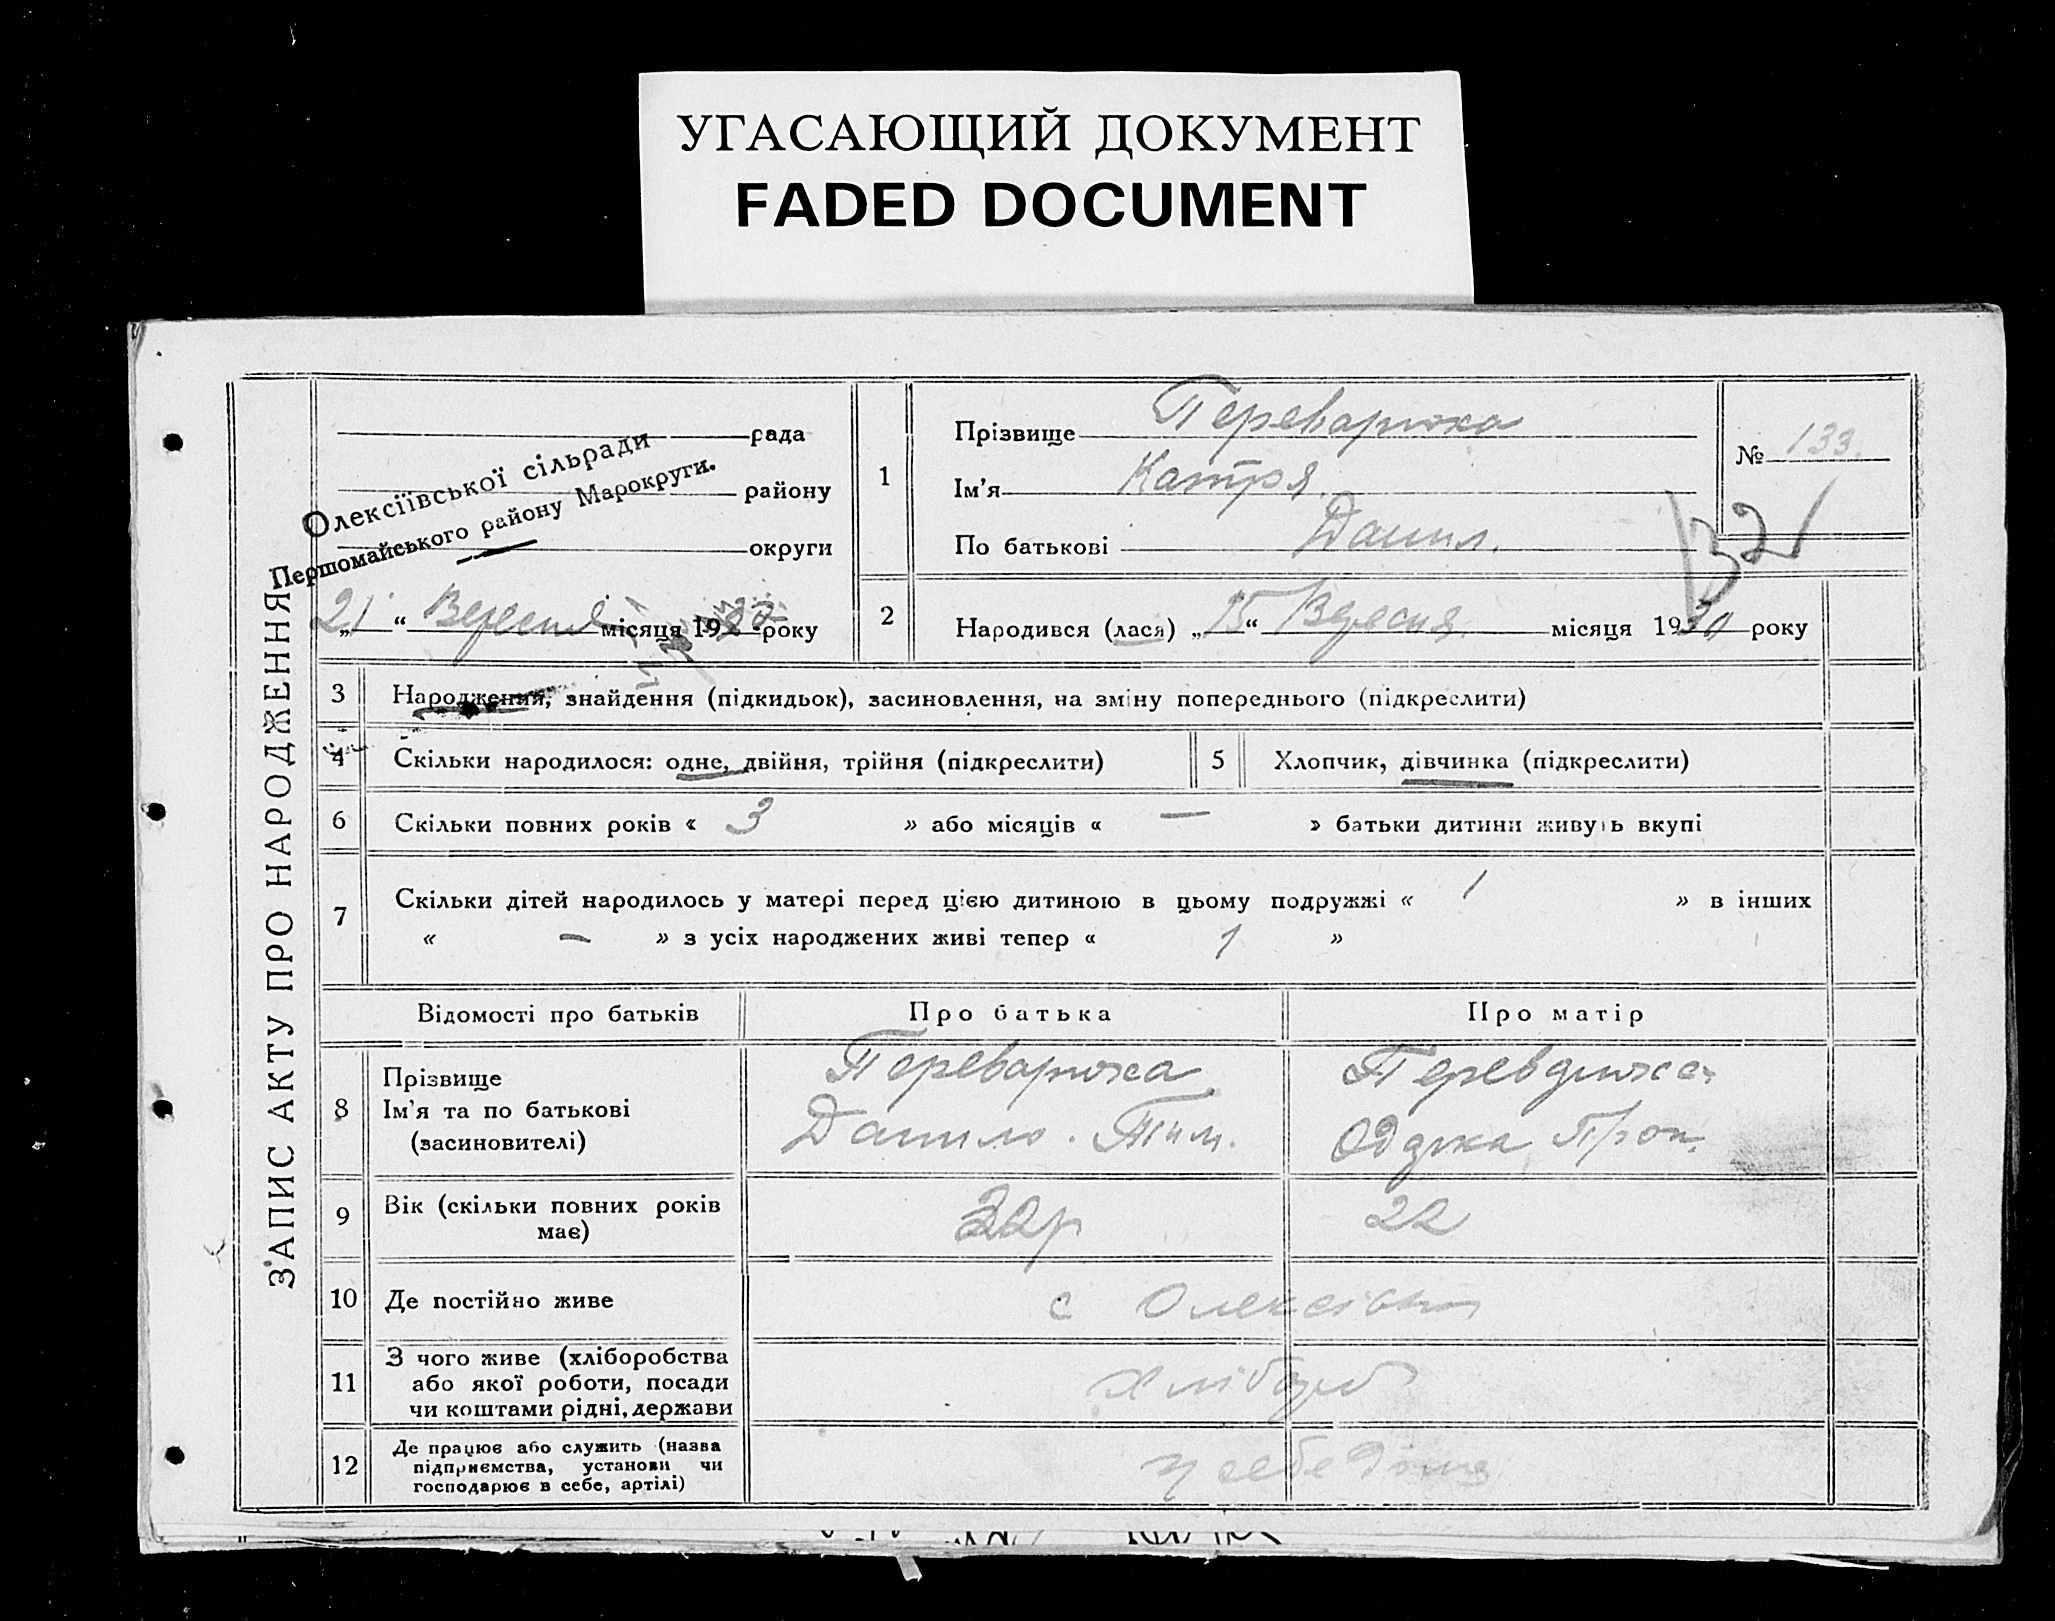 УГАСАЮЩИЙ ДОКУМЕНТ
FADED DOCUMENT
ЗАПИС АКТУ ПРО НАРОДЖЕННЯ
рада
району
округи
Олексіївської сільради
Першомайського району Марокруги.
„21“ Вересня місяця 19 року
1
Прізвище Переварюха
Ім'я Катря.
По батькові Данил.
№ 133.
132
2
Народився (лася) „15“ Вересня. місяця 1930 року
3 Народження, знайдення (підкидьок), засиновлення, на зміну попереднього (підкреслити)
4 Скільки народилося: одне, двійня, трійня (підкреслити)
5 Хлопчик, дівчинка (підкреслити)
6 Скільки повних років « 3 » або місяців « — » батьки дитини живуть вкупі
7 Скільки дітей народилось у матері перед цією дитиною в цьому подружжі « 1 » в інших
« — » з усіх народжених живі тепер « 1 »
Відомості про батьків Про батька Про матір
8
Прізвище Переварюха
Ім'я та по батькові Данило. Тим.
(засиновителі)
9 Вік (скільки повних років має) 32р 22
10 Де постійно живе с Олексіївка
11 З чого живе (хліборобства
або якої роботи, посади
чи коштами рідні, держави
Хлібороб
12 Де працює або служить (назва
підприємства, установи чи
господарює в себе, артілі)
у себе дома